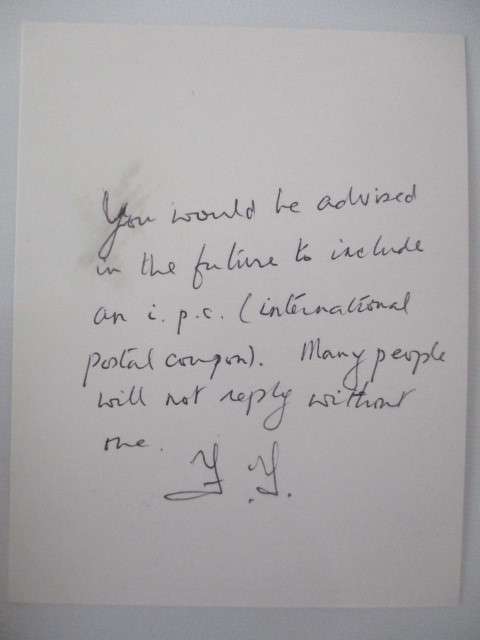 You would be advised
in the future to include
an i.p.c. (international
postal coupon). Many people
will not reply without
one.